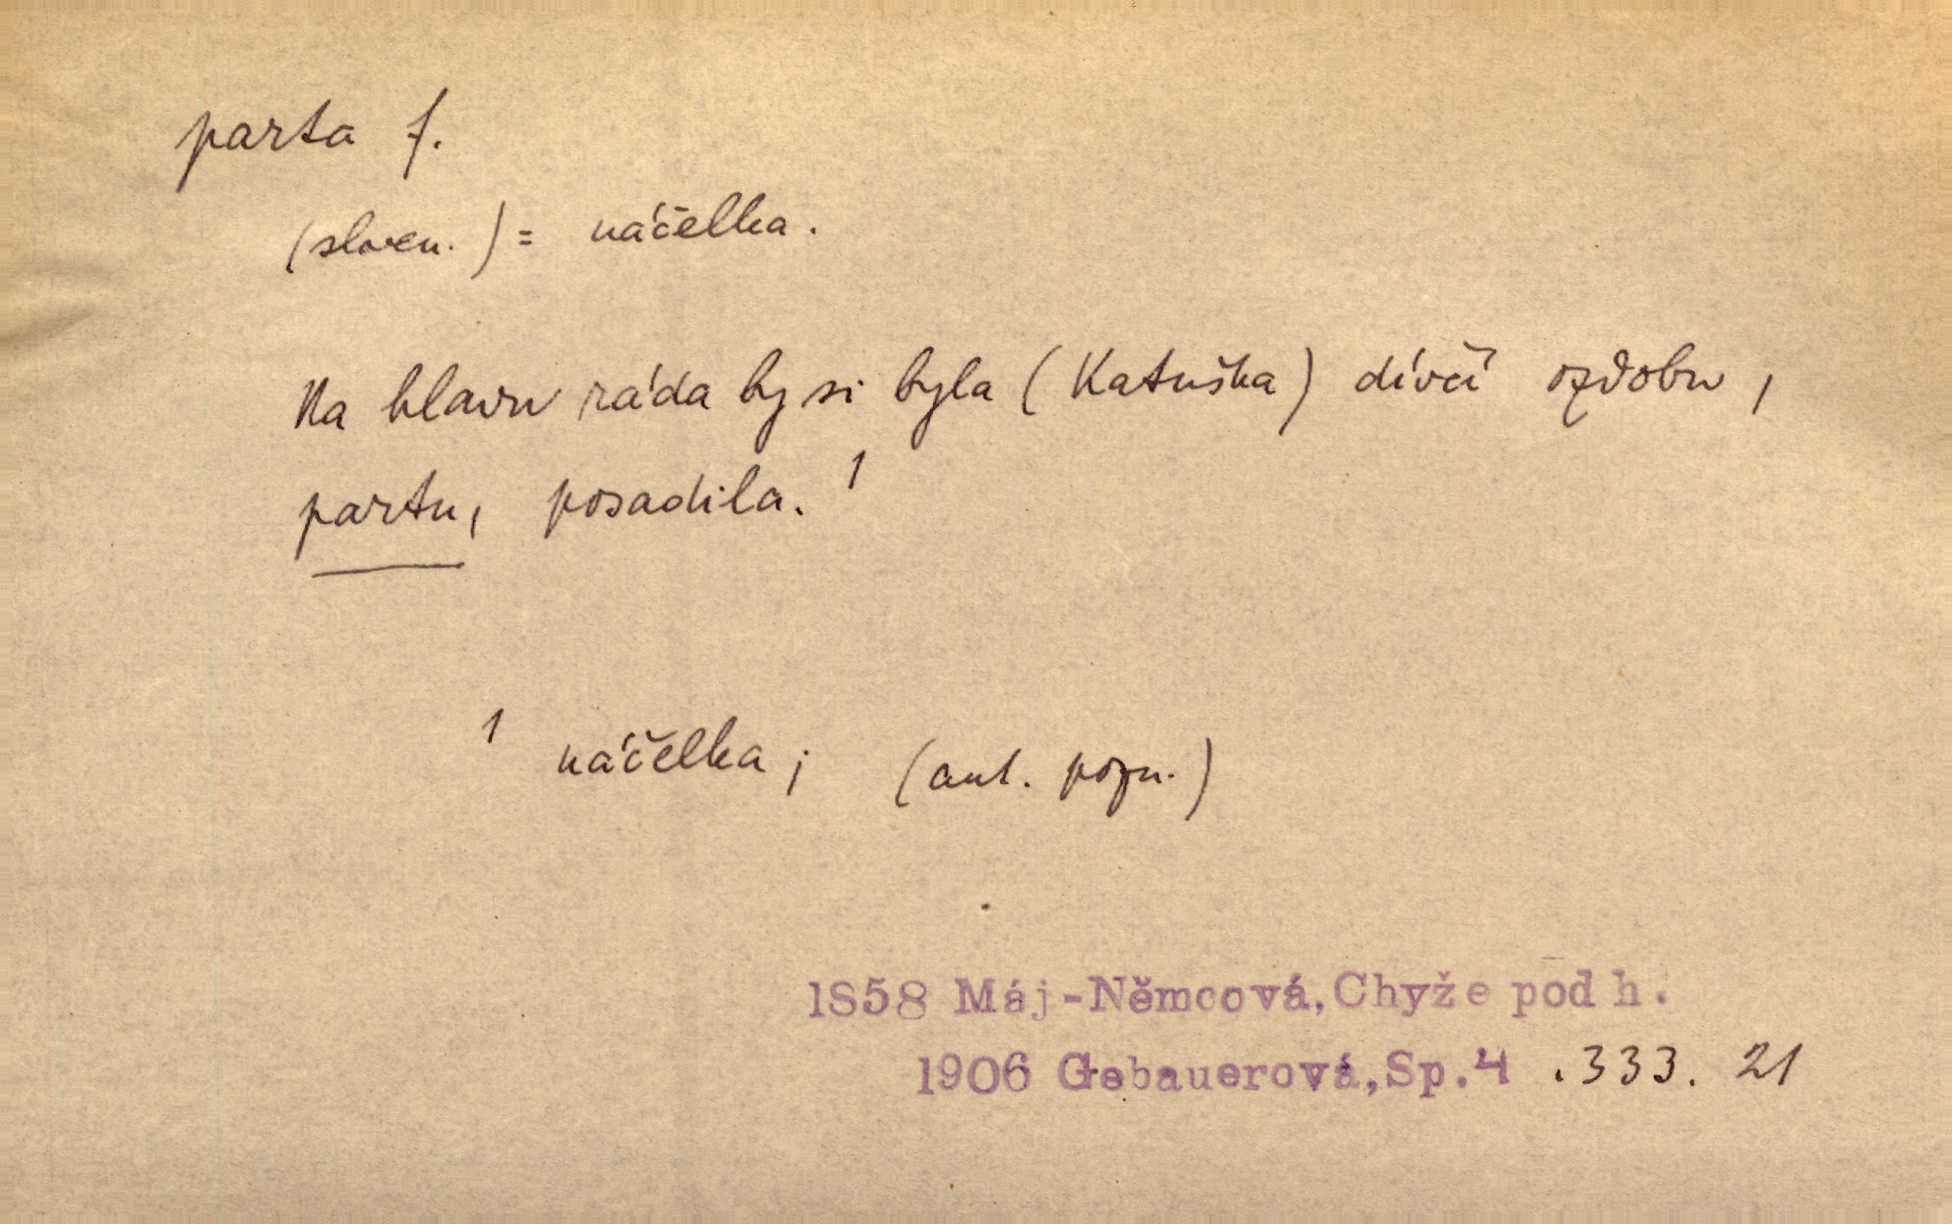 parta f.
(sloven.) = náčelka.
Na hlavu ráda by si byla (Katuška) dívčí ozdobu,
partu, posadila.¹
¹ náčelka; (aut. pozn.)
1858 Máj-Němcová, Chyže pod h.
1906 Gebauerová, Sp.4 .333. 21